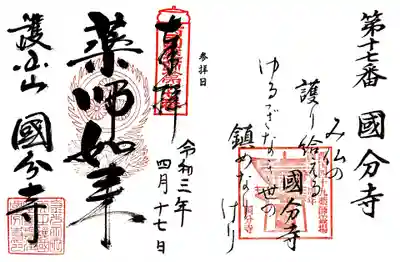 第十七番 國分寺
み仏の
護り給える
國分寺
ゆるぎなき世の
鎮めなりけり
参拝日
令和三年
四月十七日
奉拝
薬師如来
護国山 國分寺